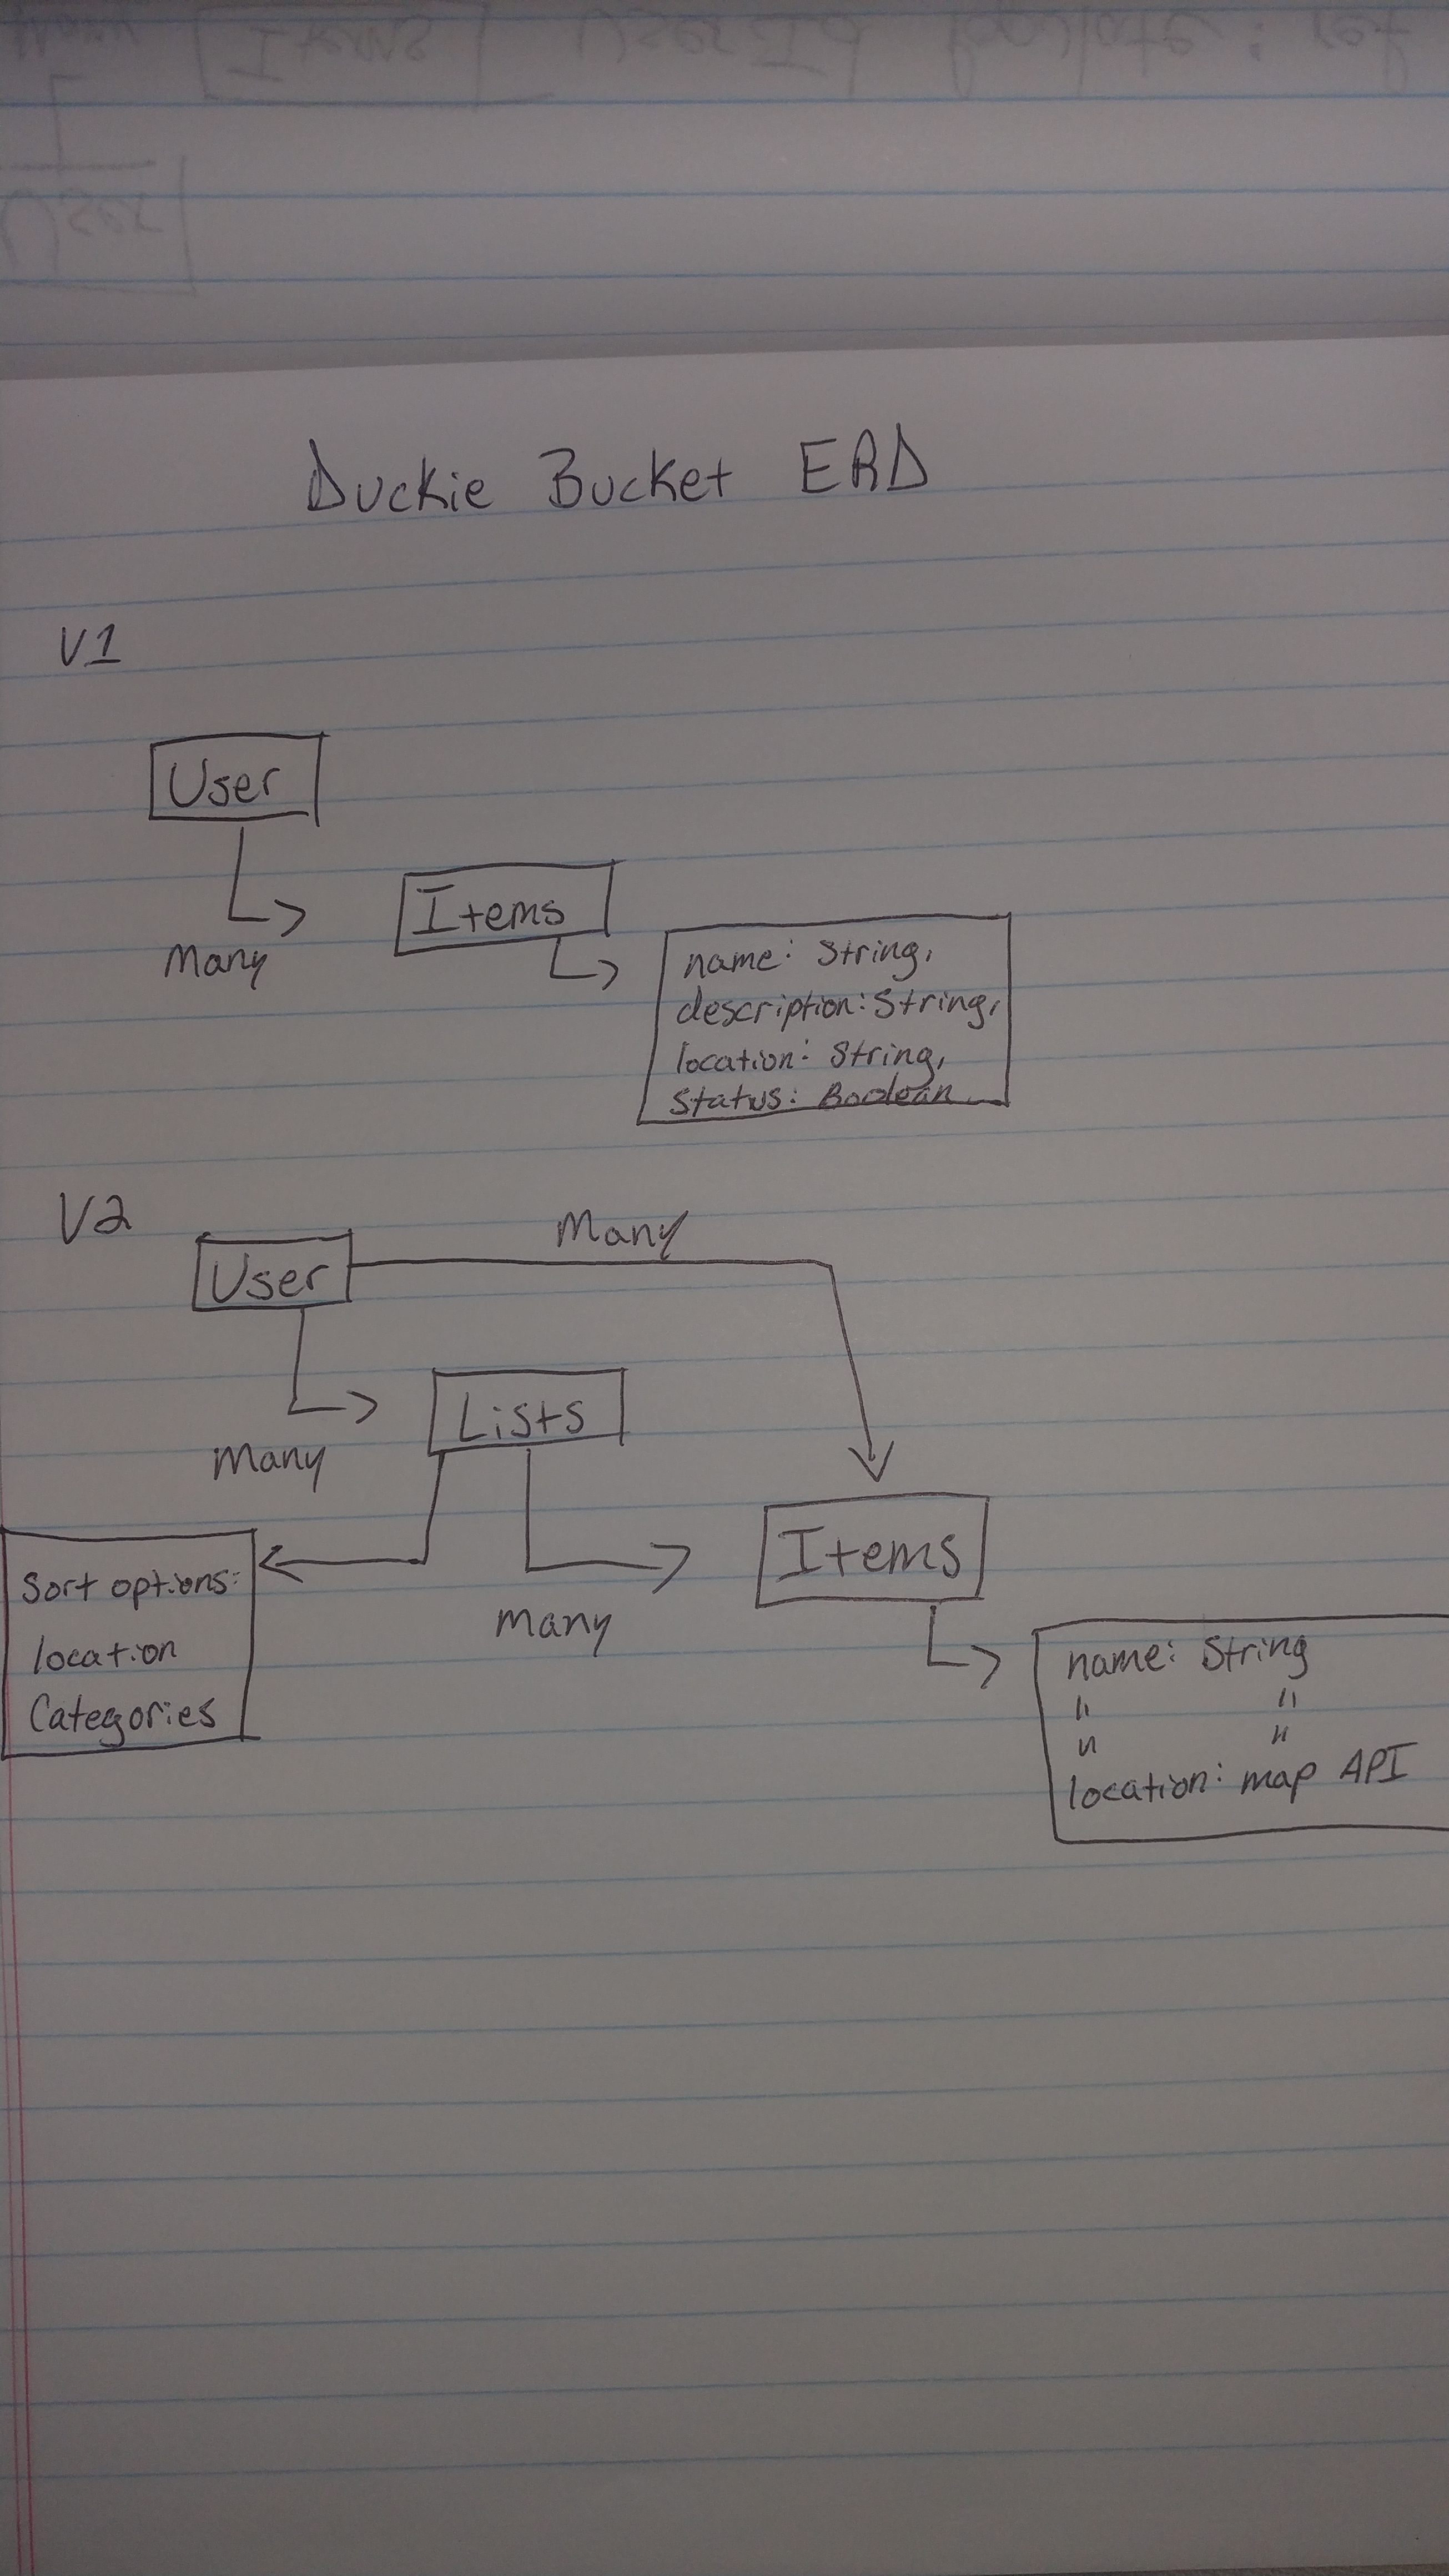 Items UserId populate: ref
User
Duckie Bucket ERD
V1
User
Many
Items
name: String,
description: String,
location: String,
Status: Boolean
V2
User
Many
Lists
Many
Sort options:
location
Categories
Many
Items
name: String
" "
" "
location: map API